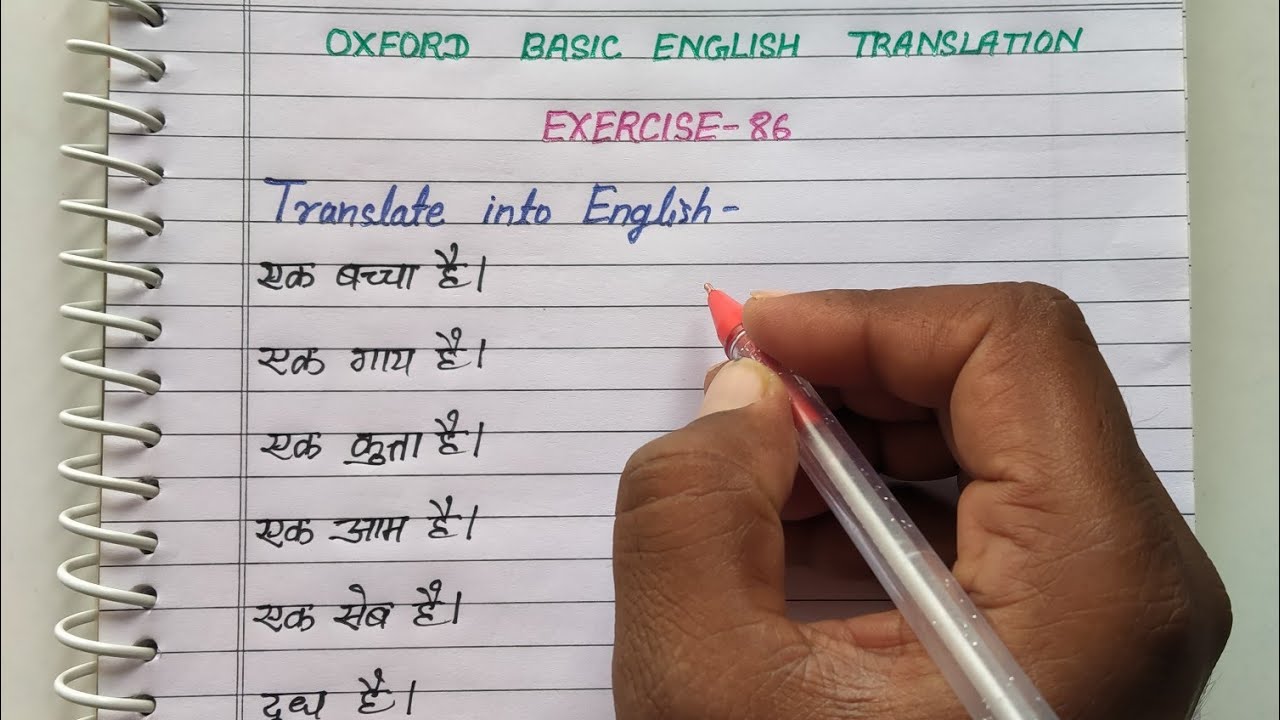 OXFORD BASIC ENGLISH TRANSLATION
EXERCISE-86
Translate into English-
एक बच्चा है।
एक गाय है।
एक कुत्ता है।
एक आम है।
एक सेब है।
दूध है।